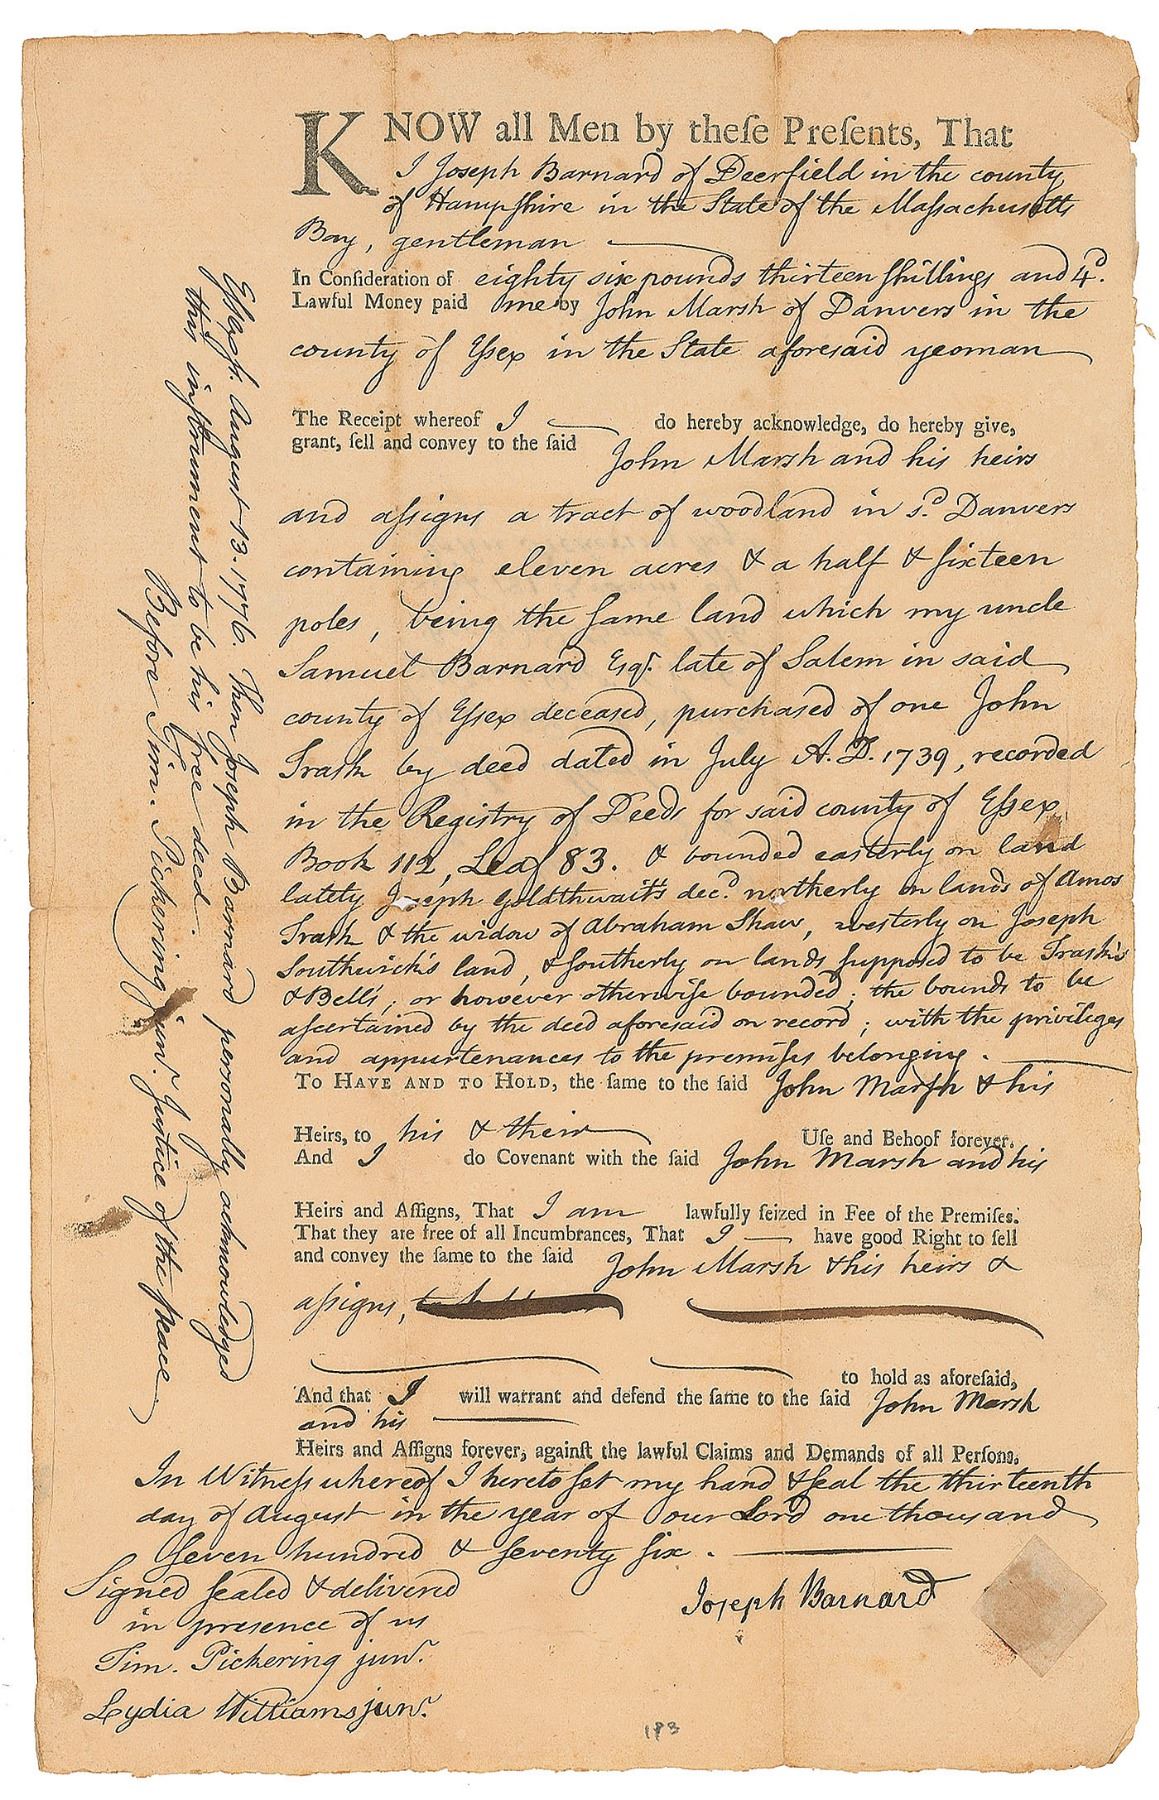 KNOW all Men by theſe Preſents, That
I Joseph Barnard of Deerfield in the county
of Hampſhire in the State of the Maſsachusetts
Bay, gentleman
In Conſideration of eighty six pounds thirteen ſhillings and 4d.
Lawful Money paid me by John Marsh of Danvers in the
county of Eſsex in the State aforesaid yeoman
The Receipt whereof I do hereby acknowledge, do hereby give,
grant, ſell and convey to the ſaid John Marsh and his heirs
and aſsigns a tract of woodland in sd. Danvers
containing eleven acres & a half & ſixteen
poles, being the ſame land which my uncle
Samuel Barnard Esqr. late of Salem in said
county of Eſsex deceased, purchased of one John
Trask by deed dated in July A.D. 1739, recorded
in the Registry of Deeds for said county of Eſsex
Book 112, Leaf 83. & bounded easterly on land
lately Joseph Goldthwait's decd. northerly on lands of Amos
Trask & the widow of Abraham Shaw, westerly on Joseph
Southwick's land, & ſoutherly on lands ſuppoſed to be Trask's
& Bell's; or however otherwiſe bounded; the bounds to be
aſcertained by the deed aforesaid on record; with the privileges
and appurtenances to the premiſes belonging.
TO HAVE AND TO HOLD, the ſame to the ſaid John Marſh & his
Heirs, to his & their Uſe and Behoof forever.
And I do Covenant with the ſaid John Marsh and his
Heirs and Aſſigns, That I am lawfully ſeized in Fee of the Premiſes.
That they are free of all Incumbrances, That I have good Right to ſell
and convey the ſame to the ſaid John Marsh & his heirs &
aſsigns,
to hold as aforeſaid,
And that I will warrant and defend the ſame to the ſaid John Marsh
and his
Heirs and Aſſigns forever, againſt the lawful Claims and Demands of all Perſons.
In Witneſs whereof I hereto ſet my hand & ſeal the thirteenth
day of August in the year of our Lord one thousand
ſeven hundred & ſeventy ſix.
Signed ſealed & delivered
in presence of us
Tim. Pickering junr.
Lydia Williams junr.
Joseph Barnard
183
Eſsex ſs. August 13. 1776. Then Joseph Barnard personally acknowledged
this inſtrument to be his free deed.
Before Tim. Pickering junr. Juſtice of the peace